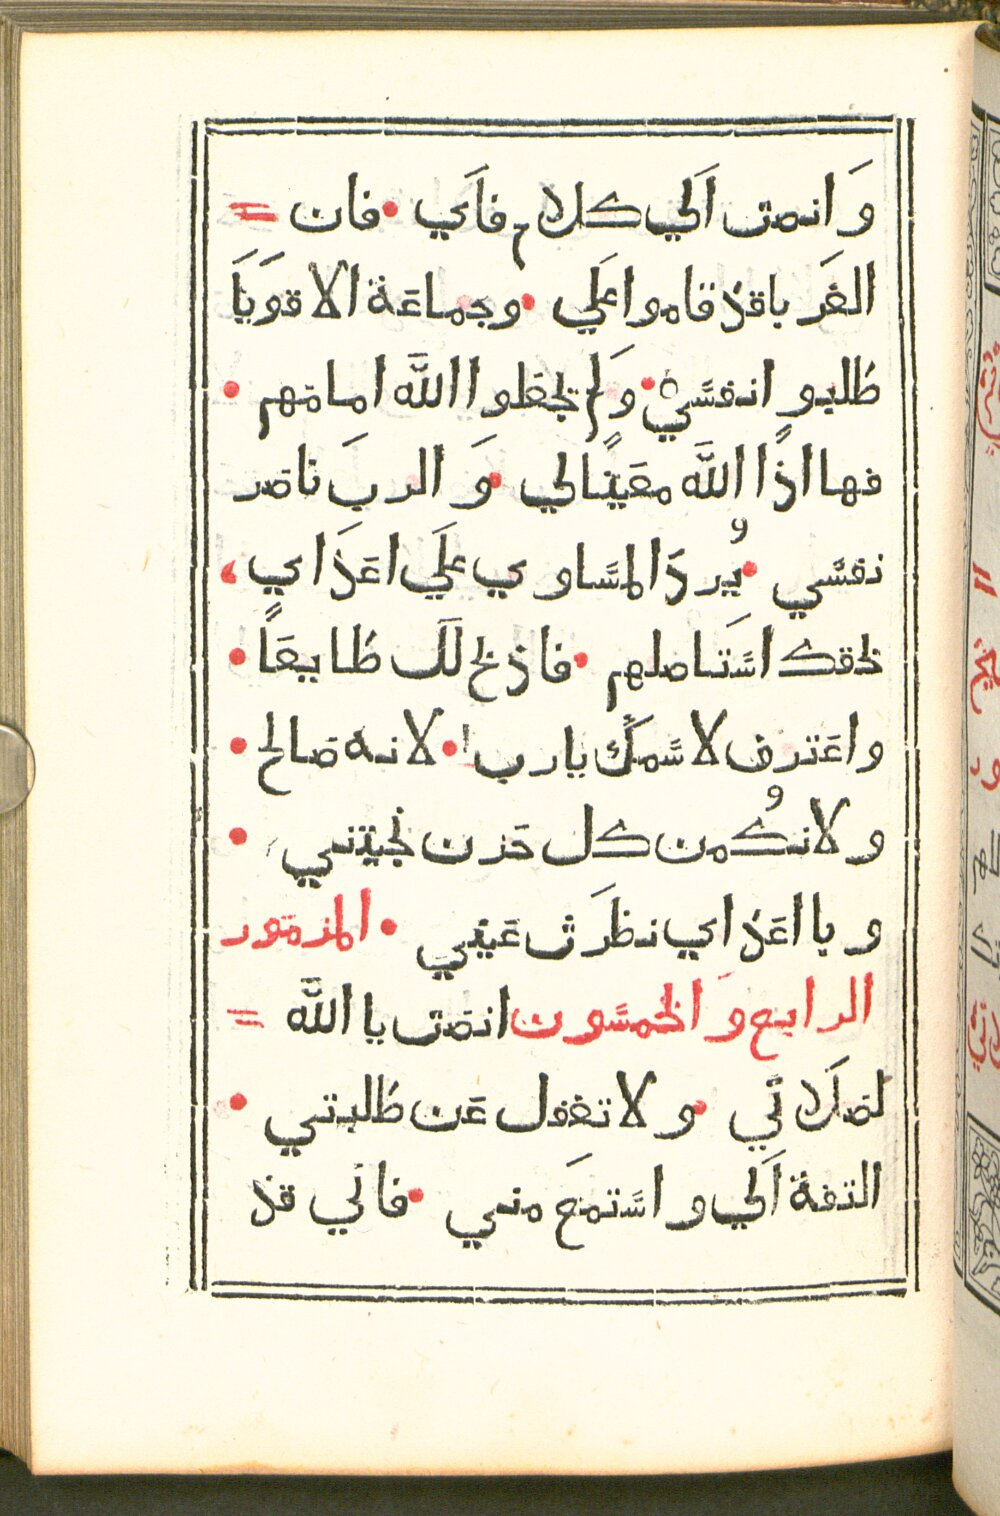 وَانصت اَلي كلام فاَي • فان =
الغَربا قد قاموا عَلي • وجماعَة الاقويَاَ
طلبو انفسَّي • وَلم يجعَلوا اللَّه امامهم •
فها اذًا اللَّه معَينًا لي • وَ الربَ ناصر
نفسَّي • يُرد المسَّاوي علَي اعَداي •
بحقك اسَّتَاصلهم • فاذبح لَلَك طايعًا •
واعَترف لاسَّمك يارب • لانه صالح •
ولانكُ من كل حَزن نجيتني •
وبا اعَداي نظَرت عَيني • المزمور
الرابع وَ الخمسَّون انصت يا اللَّه =
لصَلاتي • ولا تغفل عَن طلبتي •
التفة اَلي و اسَّتمعَ مني • فاني قد